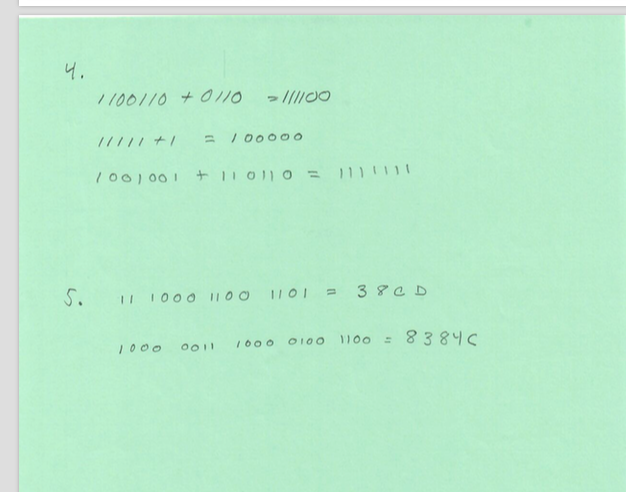 4.
1100110 + 0110 = 111100
11111 + 1 = 100000
1001001 + 110110 = 1111111
5. 11 1000 1100 1101 = 38CD
1000 0011 1000 0100 1100 = 8384C